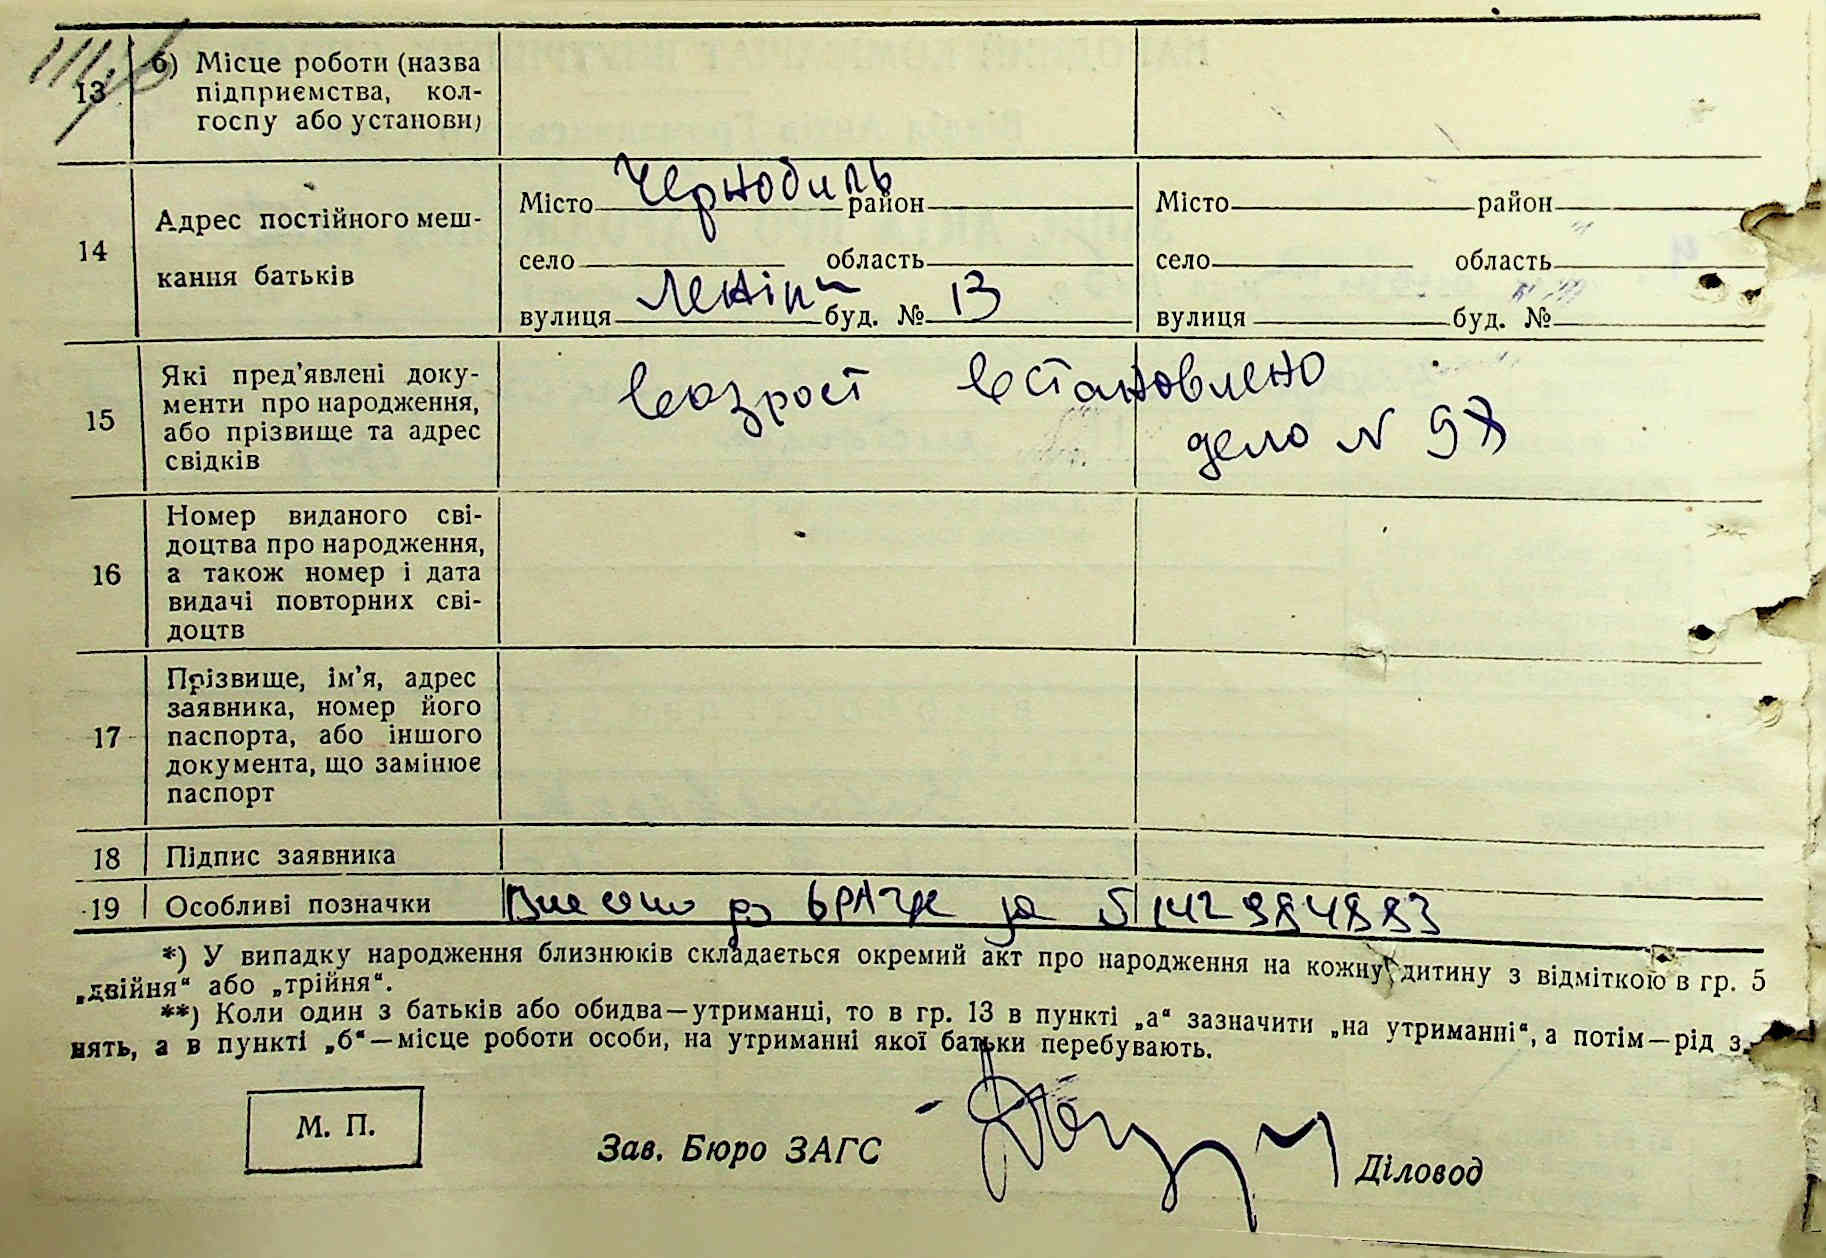 13 б) Місце роботи (назва
підприємства, кол-
госпу або установи)
14 Адрес постійного меш-
кання батьків
Місто Чернобиль район
село область
вулиця Леніна буд. № 13
Місто район
село область
вулиця буд. №
15 Які пред'явлені доку-
менти про народження,
або прізвище та адрес
свідків
Возрост встановлено
дело N 97
16 Номер виданого сві-
доцтва про народження,
а також номер і дата
видачі повторних сві-
доцтв
17 Прізвище, ім'я, адрес
заявника, номер його
паспорта, або іншого
документа, що замінює
паспорт
18 Підпис заявника
19 Особливі позначки
Внесено до ДРАЦС за
*) У випадку народження близнюків складається окремий акт про народження на кожну дитину з відміткою в гр. 5
„двійня“ або „трійня“.
**) Коли один з батьків або обидва—утриманці, то в гр. 13 в пункті „а“ зазначити „на утриманні“, а потім—рід з
нять, а в пункті „б“—місце роботи особи, на утриманні якої батьки перебувають.
М. П.
Зав. Бюро ЗАГС
Діловод